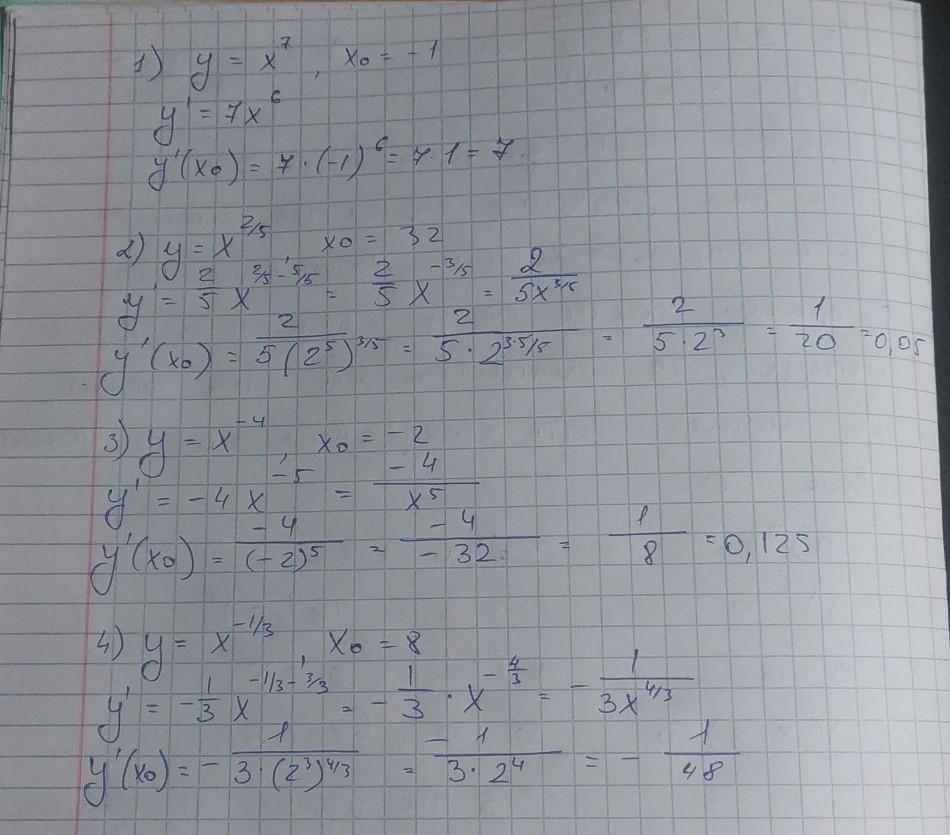 1) y = x^7, x₀ = -1
y' = 7x^6
y'(x₀) = 7·(-1)^6 = 7·1 = 7.
2) y = x^{2/5}, x₀ = 32
y' = 2/5 x^{2/5 - 5/5} = 2/5 x^{-3/5} = 2/(5x^{3/5})
y'(x₀) = 2/(5(2^5)^{3/5}) = 2/(5·2^{3·5/5}) = 2/(5·2^3) = 1/20 = 0,05
3) y = x^{-4}, x₀ = -2
y' = -4x^{-5} = -4/x^5
y'(x₀) = -4/(-2)^5 = -4/-32 = 1/8 = 0,125
4) y = x^{-1/3}, x₀ = 8
y' = -1/3 x^{-1/3 - 3/3} = -1/3 · x^{-4/3} = -1/(3x^{4/3})
y'(x₀) = -1/(3·(2^3)^{4/3}) = -1/(3·2^4) = -1/48